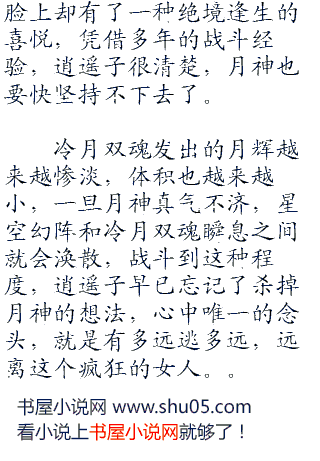 脸上却有了一种绝境逢生的
喜悦，凭借多年的战斗经
验，逍遥子很清楚，月神也
要快坚持不下去了。
冷月双魂发出的月辉越
来越惨淡，体积也越来越
小，一旦月神真气不济，星
空幻阵和冷月双魂瞬息之间
就会涣散，战斗到这种程
度，逍遥子早已忘记了杀掉
月神的想法，心中唯一的念
头，就是有多远逃多远，远
离这个疯狂的女人。。
书屋小说网 www.shu05.com
看小说上书屋小说网就够了！